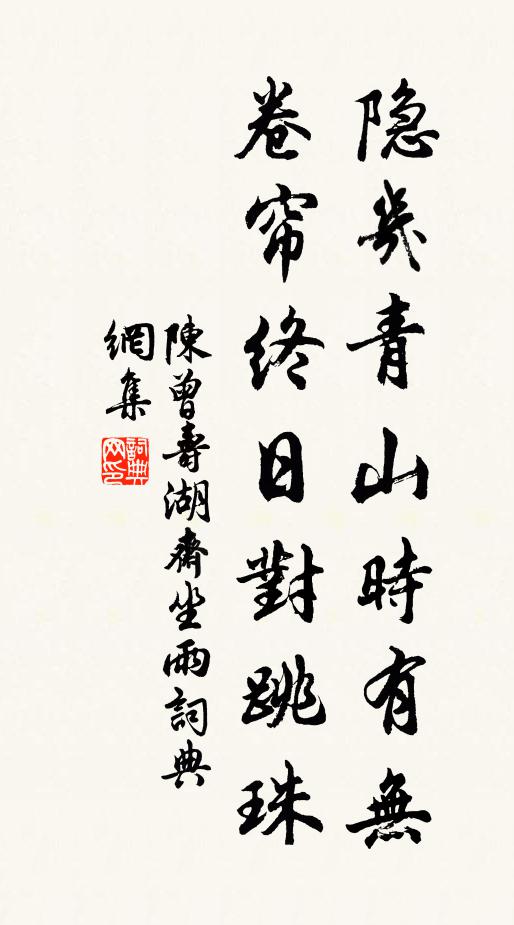 隐幾青山時有無
卷帘终日對跳珠
陳曾壽湖齋坐雨詞典
網集
詞典網印